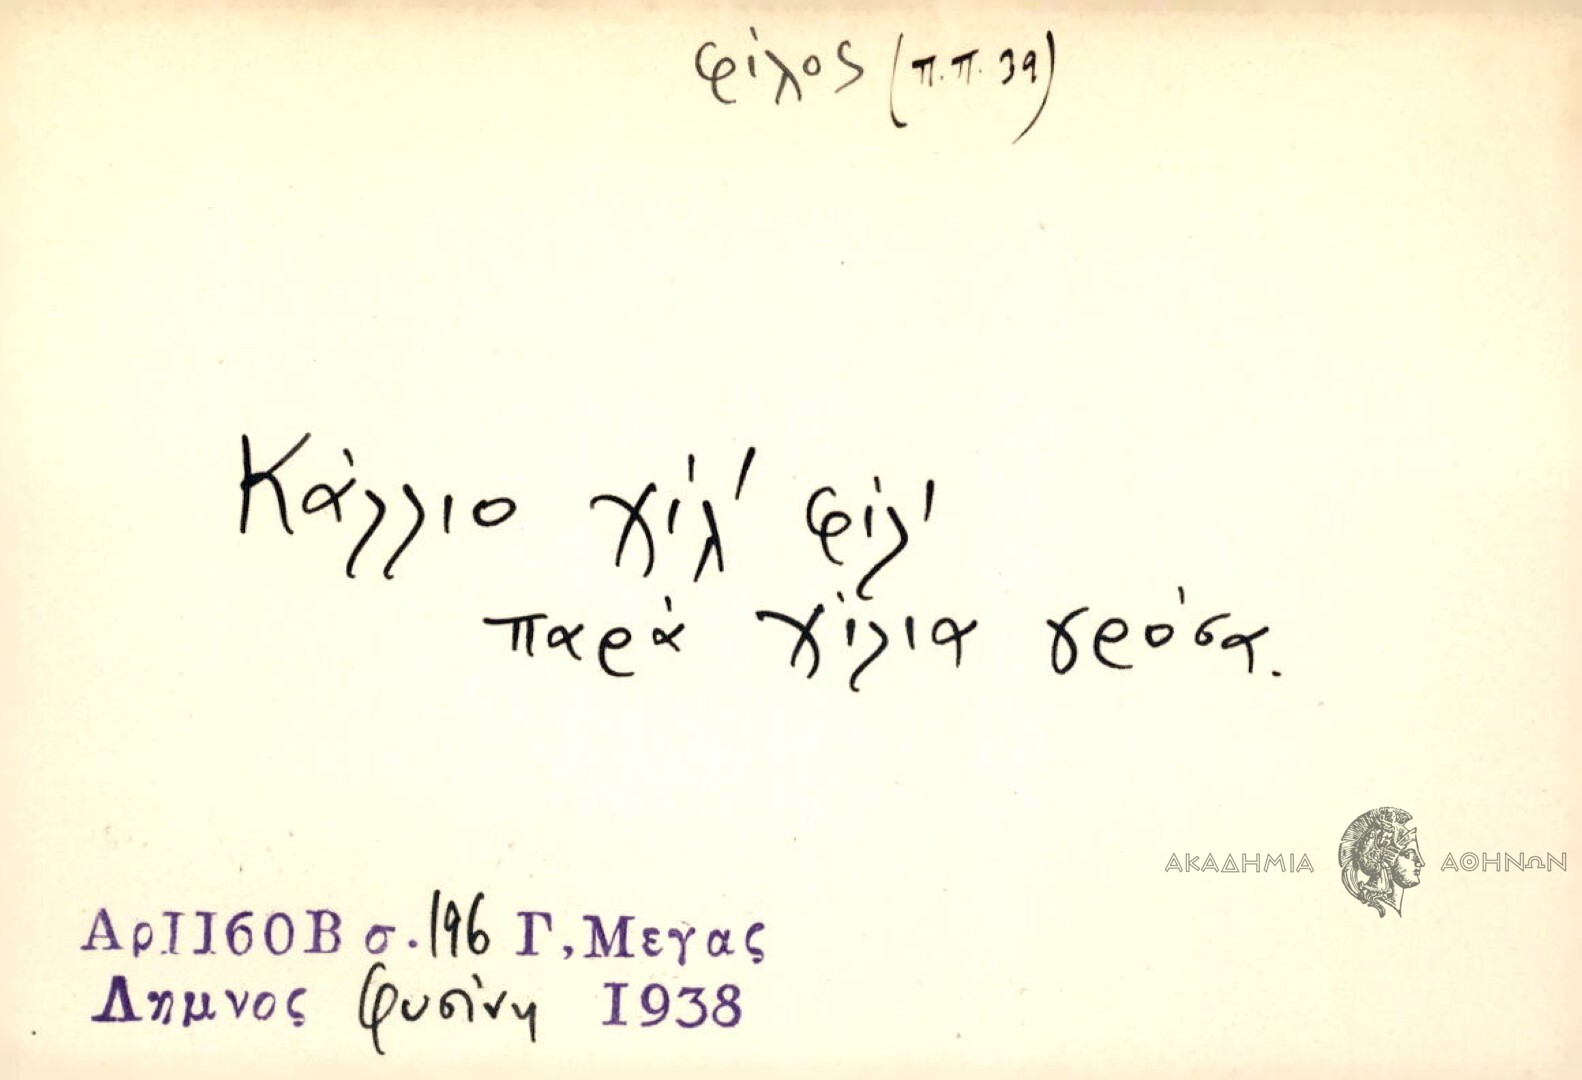 φίλος (π.π. 39)
Κάλλιο χίλ' φίλ'
παρά χίλια γρόσα.
ΑΚΑΔΗΜΙΑ ΑΘΗΝΩΝ
ΑρΙΙ60Β σ. 196 Γ,Μεγας
Λημνος Φυσίνη 1938